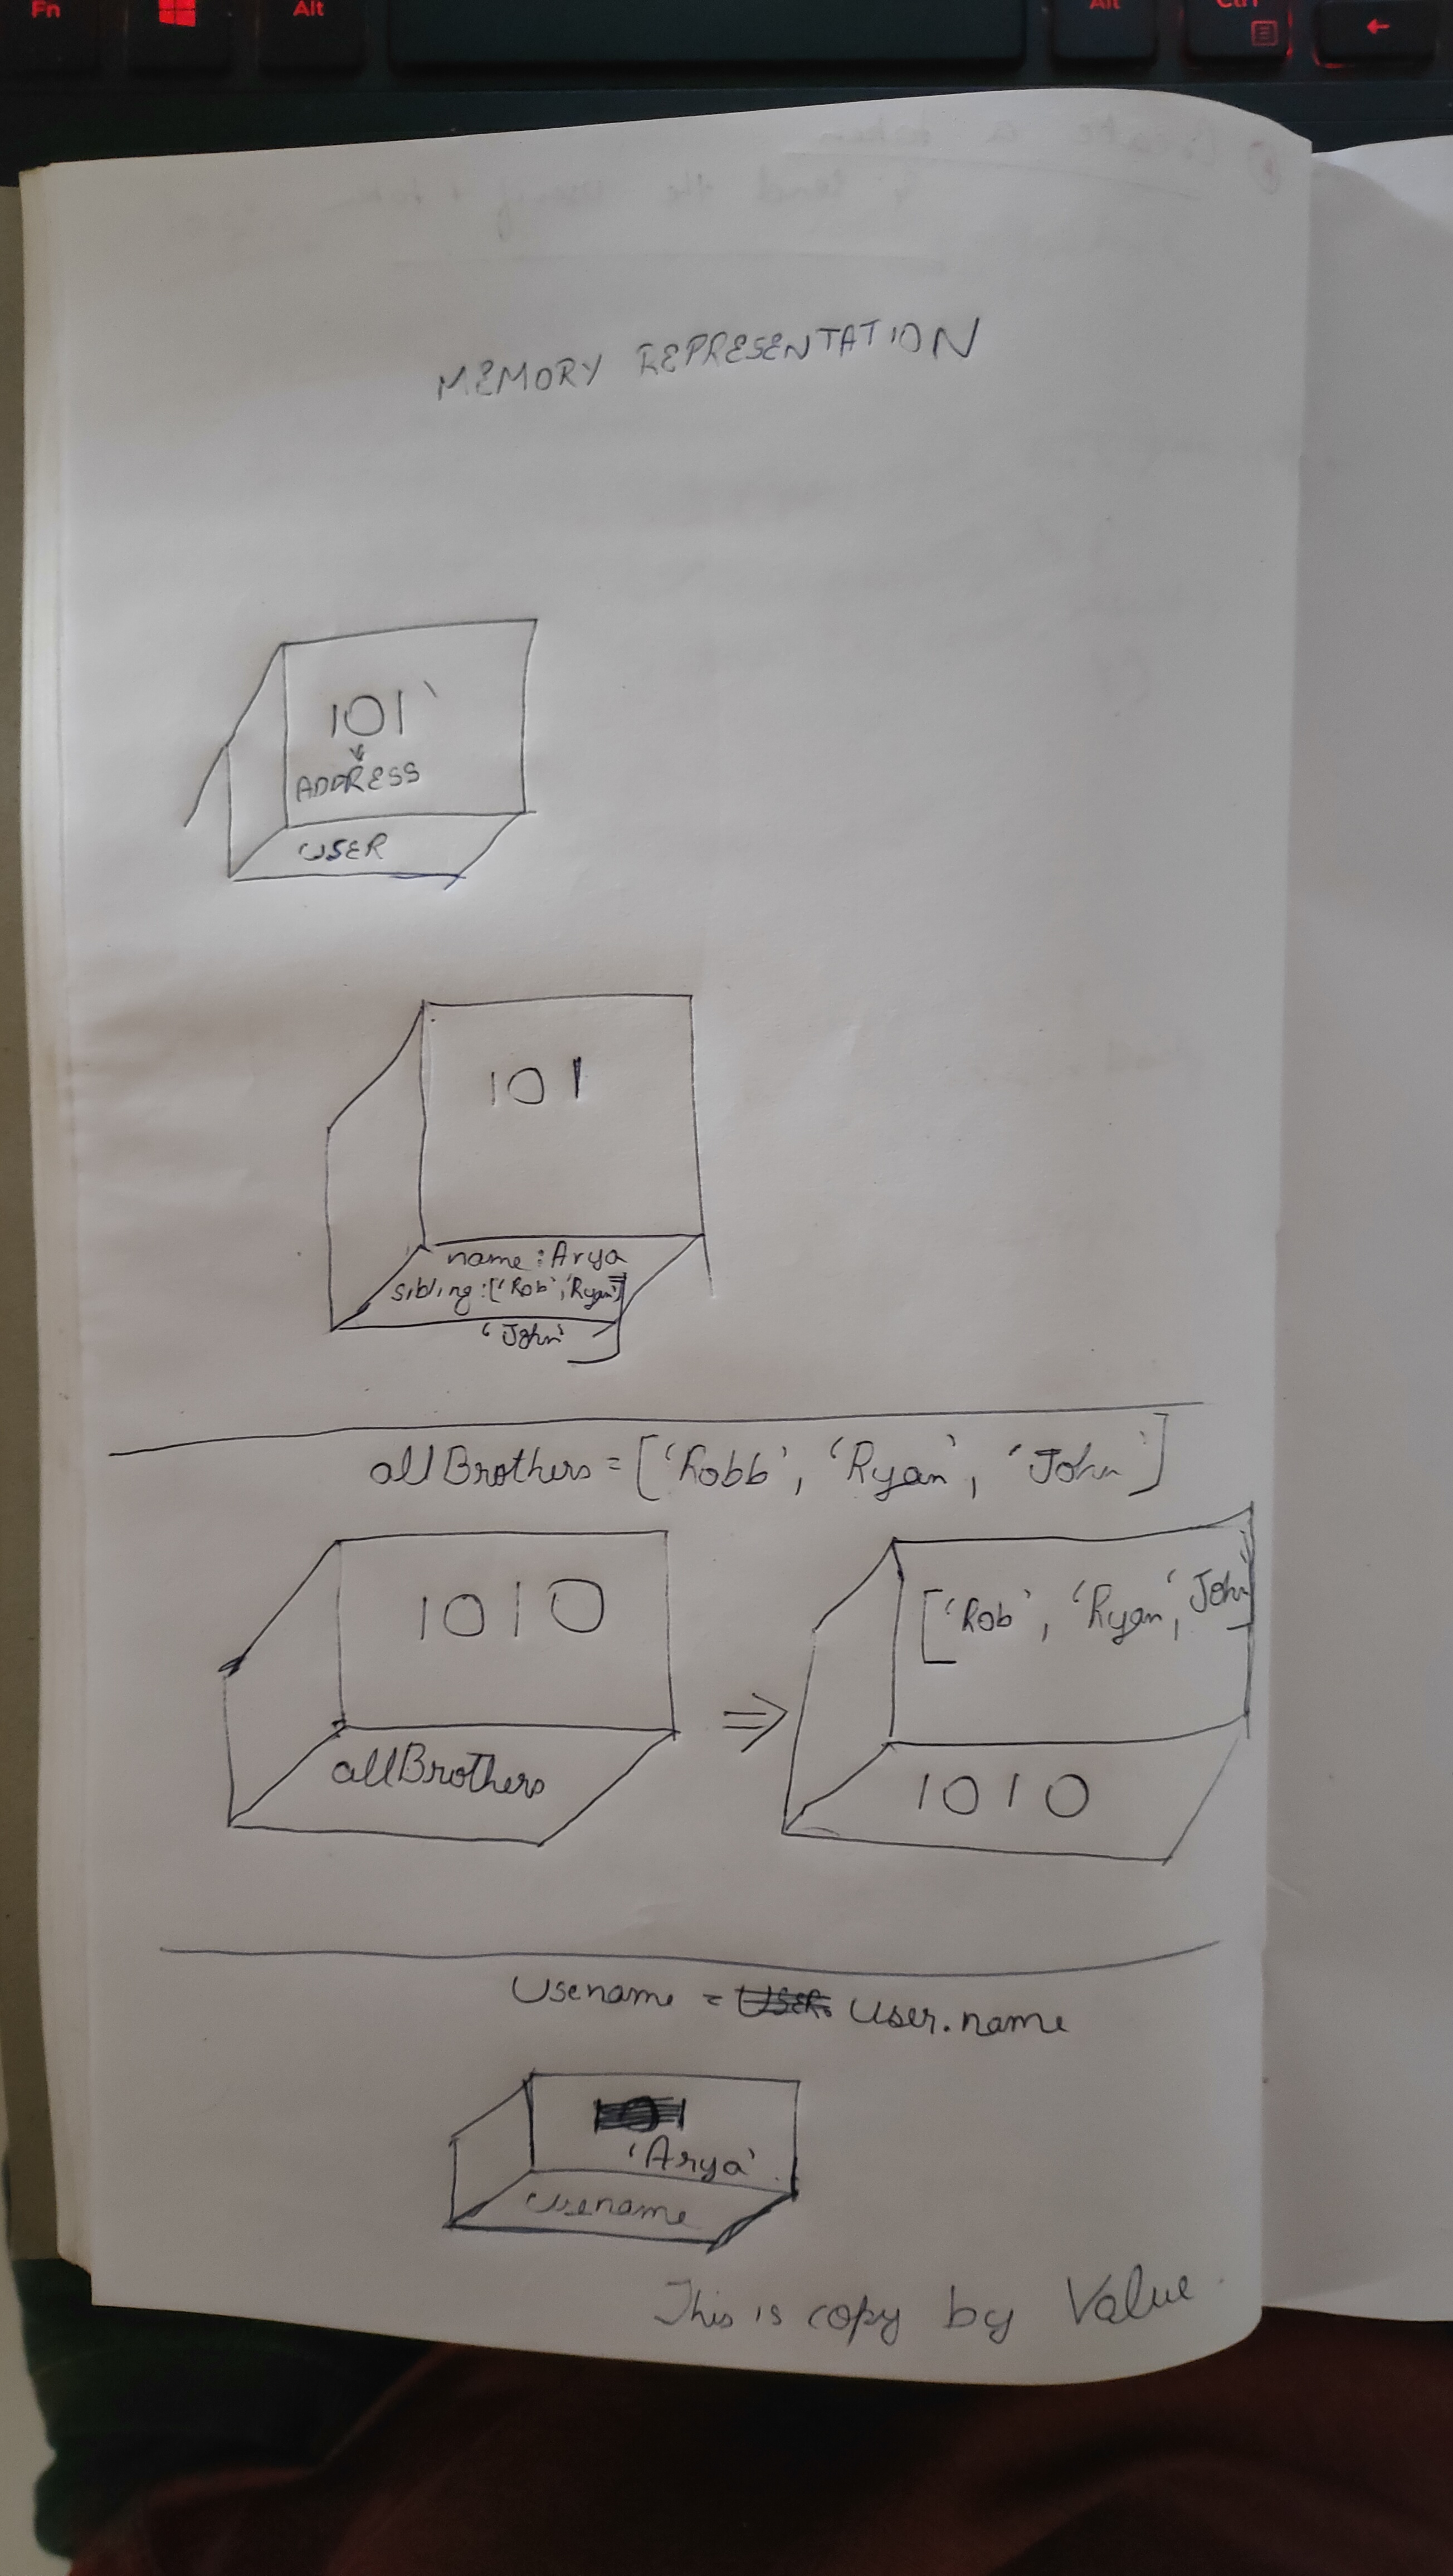 Fn
Alt
Alt
Ctrl
MEMORY REPRESENTATION
101
ADDRESS
USER
101
name : Arya
sibling : ['Rob', 'Ryan']
'John' ]
allBrothers = ['Robb', 'Ryan', 'John']
1010
allBrothers
['Rob', 'Ryan', 'John']
1010
Usename = User. User.name
101
'Arya'
Usename
This is copy by Value.